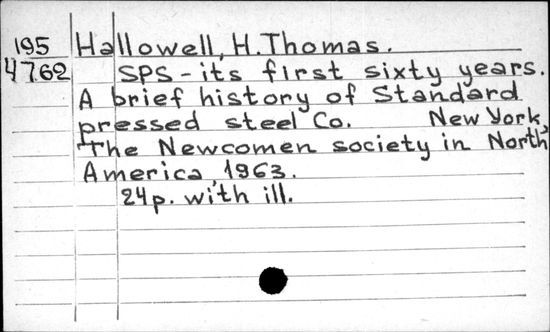 195 Hallowell, H. Thomas.
4762 SPS - its first sixty years.
A brief history of Standard
pressed steel Co. New York,
The Newcomen society in North
America, 1963.
24 p. with ill.